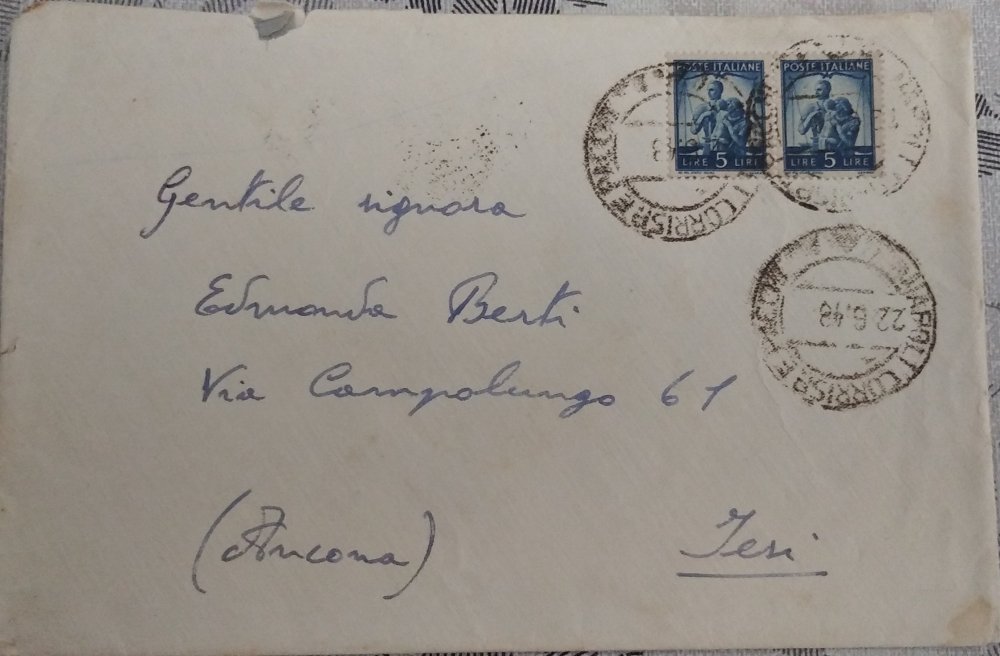 POSTE ITALIANE
LIRE 5 LIRE
POSTE ITALIANE
LIRE 5 LIRE
NAPOLI CORRISP. E PACCHI
22.6.48
Gentile signora
Edmonda Berti
Via Campolungo 61
(Ancona) Jesi